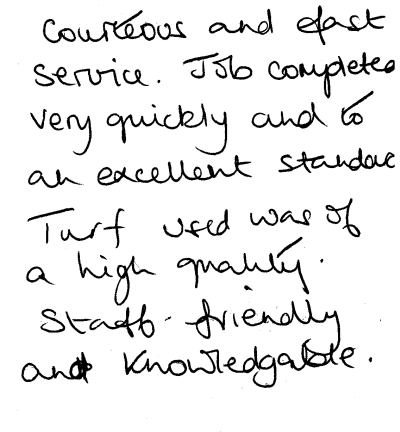 Courteous and fast
service. Job completed
very quickly and to
an excellent standard
Turf used was of
a high quality.
Staff friendly
and knowledgable.